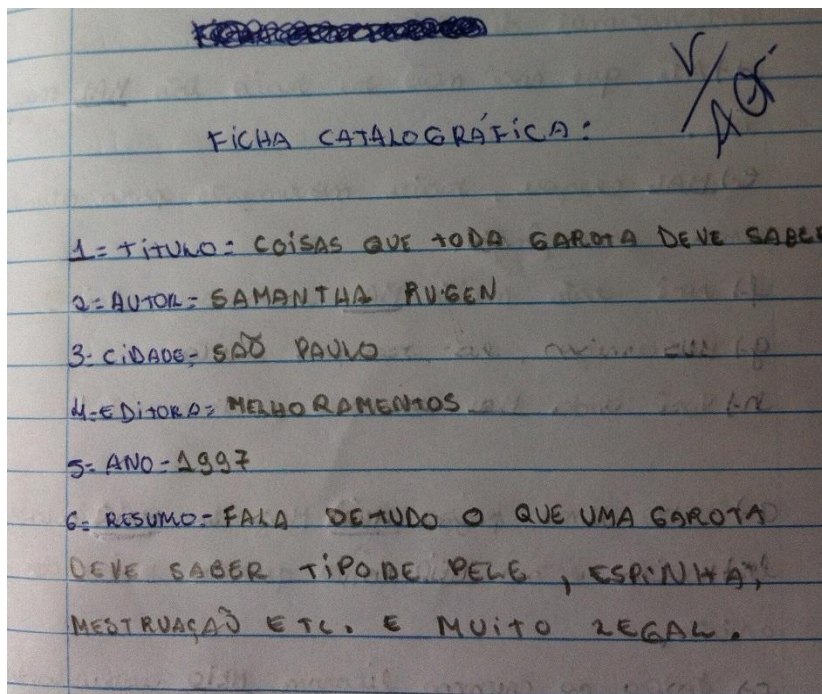 FICHA CATALOGRÁFICA:
1= TÍTULO= COISAS QUE TODA GAROTA DEVE SABER
2= AUTOR= SAMANTHA RUGEN
3- CIDADE- SÃO PAULO
4-EDITORA= MELHORAMENTOS
5- ANO-1997
6= RESUMO- FALA DE TUDO O QUE UMA GAROTA
DEVE SABER TIPO DE PELE, ESPINHA,
MESTRUAÇÃO ETC. E MUITO LEGAL.